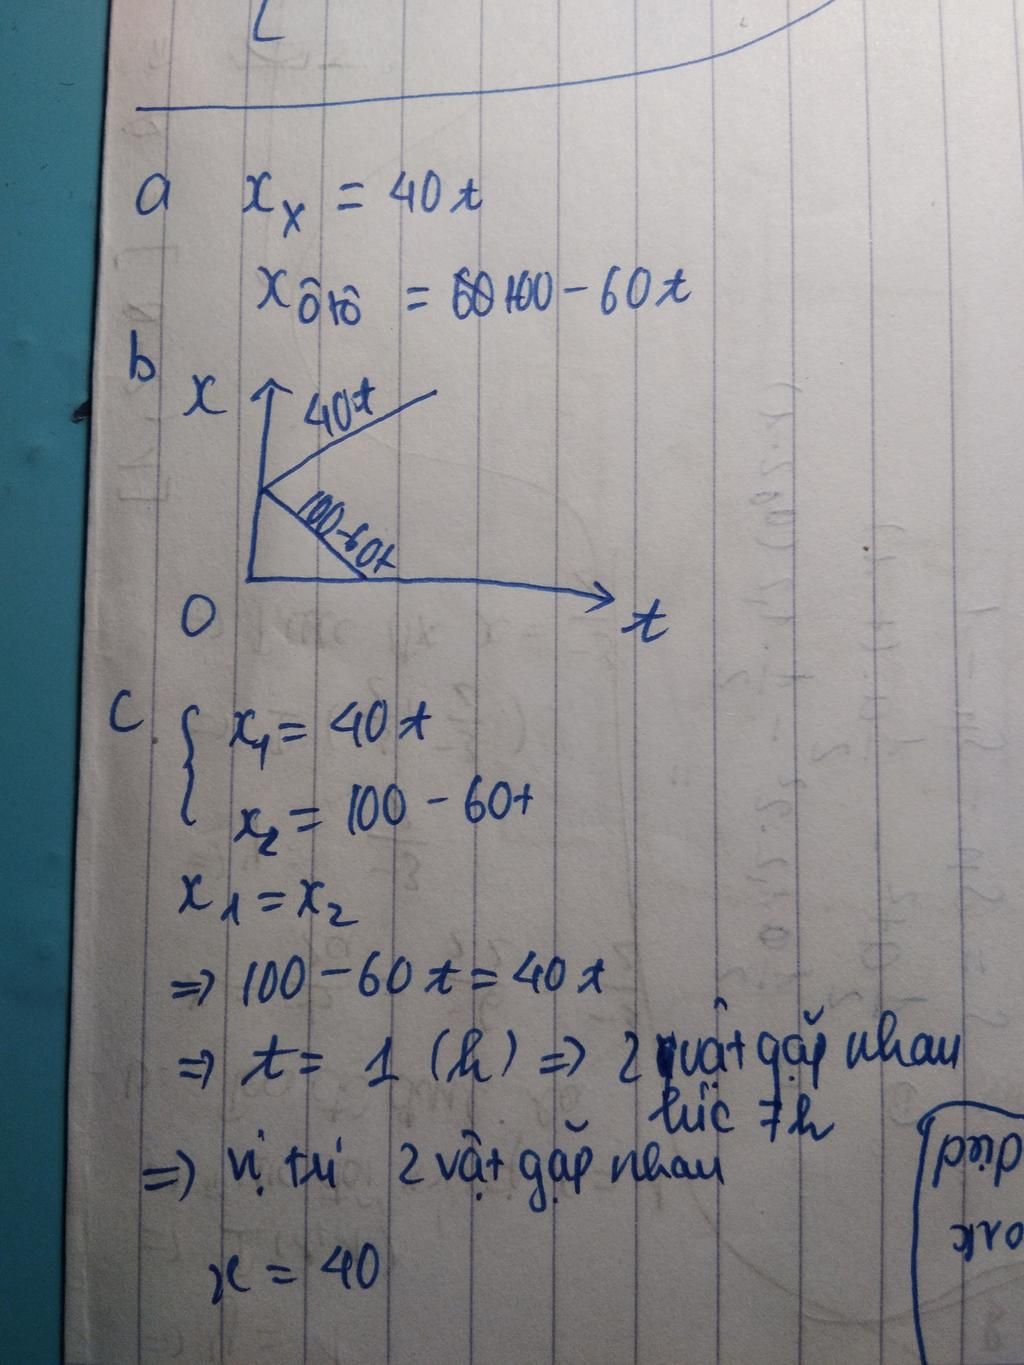 a x_x = 40t
x_ôtô = 100 - 60t
b
x
40t
100-60t
O
t
c { x_1 = 40t
x_2 = 100 - 60t
x_1 = x_2
=> 100 - 60t = 40t
=> t = 1 (h) => 2 vật gặp nhau
lúc 7h
=> vị trí 2 vật gặp nhau
x = 40